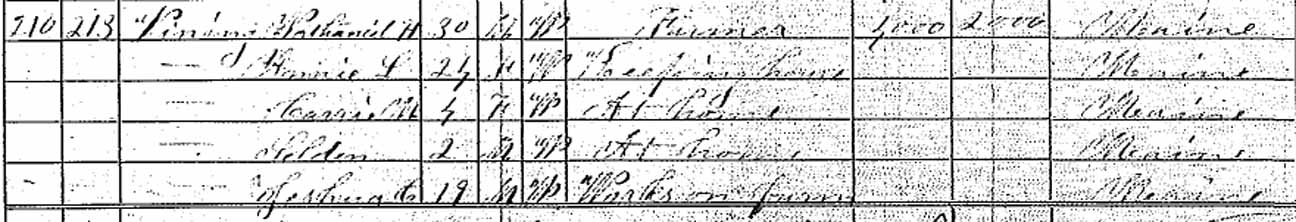 210 213 Vining Nathaniel H 30 M W Farmer 4000 2000 Maine
— Fannie L 24 F W Keeping house Maine
— Carrie M 4 F W At home Maine
— Selden 2 M W At home Maine
— Joshua C 19 M W Works on farm Maine